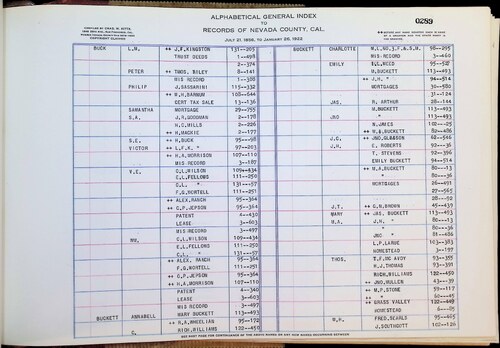 ALPHABETICAL GENERAL INDEX
0289
TO
RECORDS OF NEVADA COUNTY, CAL.
JULY 21, 1856, TO JANUARY 26, 1922
COPYRIGHT
BUCK L.M. ++ J.F. KINGSTON 131--205
TRUST DEEDS 1--498
2--374
PETER ++ THOS. RILEY 8--141
MIS RECORD 1--308
PHILIP J. SASSARINI 115--332
++ W.H. BARNUM 100--644
CERT TAX SALE 13--136
SAMANTHA MORTGAGE 29--755
S.A. J.R. GOODMAN 2--178
H.C. MILLS 2--226
++ H. MACKIE 2--177
S.E. ++ H. BUCK 95--98
VICTOR ++ L.F.K. " 97--203
++ H.A. MORRISON 107--110
MIS RECORD 3--187
W.E. C.L. WILSON 109--434
E.L. FELLOWS 111--250
C.L. " 131--57
F.G. WORTELL 111--251
++ ALEX. RANCH 95--364
++ G.P. JEPSON 95--364
PATENT 4--430
MIS RECORD 3--497
WM. C.L. WILSON 109--434
E.L. FELLOWS 111--250
C.L. " 131--57
++ ALEX. RANCH 95--364
F.G. WORTELL 111--251
++ G.P. JEPSON 95--364
++ H.A. MORRISON 107--110
PATENT 4--340
LEASE 3--603
MIS RECORD 3--497
BUCKETT ANNABELL MARY BUCKETT 113--493
++ R.A. WHELLAN 95--172
C. RICH. WILLIAMS 122--450
BUCKETT CHARLOTTE 98--295
MIS RECORD 3--460
EMILY T.L. REED 95--527
M. BUCKETT 113--493
++ J.H. " 94--514
MORTGAGES 30--580
JAS. R. ARTHUR 28--144
M. BUCKETT 113--493
JNO ++ M. " 113--493
W. JAMES 102--25
++ M.A. BUCKETT 82--486
J.C. ++ JNO. GLEASON 68--516
J.H. E. ROBERTS 92--36
T. STEVENS 92--396
EMILY BUCKETT 94--514
++ M.A. BUCKETT 80--13
" 80--36
MORTGAGES 26--491
27--565
28--52
J.T. ++ G.N. BROWN 45--439
MARY ++ JAS. BUCKETT 113--493
M.A. J.H. " 80--13
" 80--36
JNO " 81--486
L.P. LARUE 103--383
HOMESTEAD 3--197
THOS. T.J. MC AVOY 93--355
W.J. THOMAS 93--391
RICH. WILLIAMS 122--450
++ JNO. MULLEN 43--39
++ M.P. STONE 59--117
LEASE 99--45
++ GRASS VALLEY 122--449
HOMESTEAD 8--85
W.H. ++ FRED. SEARLS 98--465
J. SOUTHCOTT 102--126